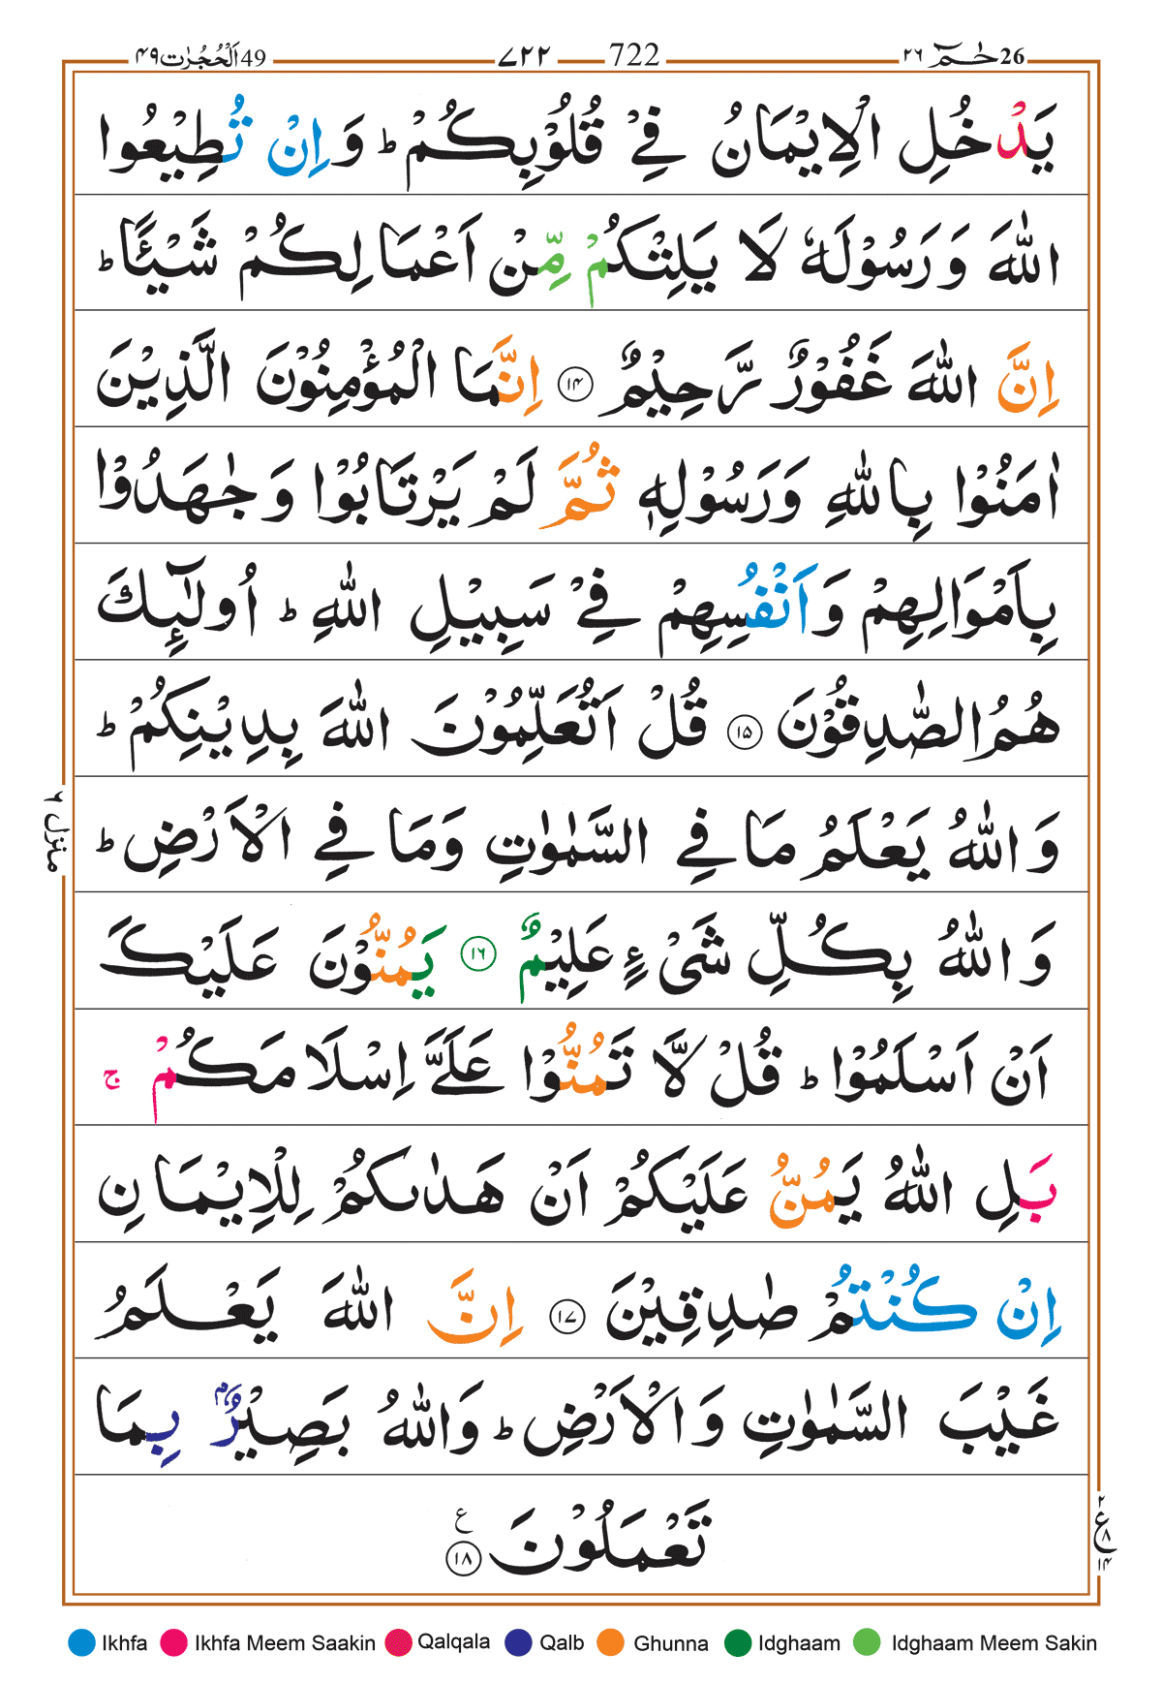 اَلْحُجُرٰت٤٩ 49 ٧٢٢ 722 حٰمٓ ٢٦ 26
يَدْخُلِ الْاِيْمَانُ فِيْ قُلُوْبِكُمْ ؕ وَاِنْ تُطِيْعُوا
اللّٰهَ وَرَسُوْلَهٗ لَا يَلِتْكُمْ مِّنْ اَعْمَالِكُمْ شَيْـًٔا ؕ
اِنَّ اللّٰهَ غَفُوْرٌ رَّحِيْمٌ ۝١٤ اِنَّمَا الْمُؤْمِنُوْنَ الَّذِيْنَ
اٰمَنُوْا بِاللّٰهِ وَرَسُوْلِهٖ ثُمَّ لَمْ يَرْتَابُوْا وَجٰهَدُوْا
بِاَمْوَالِهِمْ وَاَنْفُسِهِمْ فِيْ سَبِيْلِ اللّٰهِ ؕ اُولٰٓئِكَ
هُمُ الصّٰدِقُوْنَ ۝١٥ قُلْ اَتُعَلِّمُوْنَ اللّٰهَ بِدِيْنِكُمْ ؕ
وَاللّٰهُ يَعْلَمُ مَا فِي السَّمٰوٰتِ وَمَا فِي الْاَرْضِ ؕ
منزل ٦
وَاللّٰهُ بِكُلِّ شَيْءٍ عَلِيْمٌ ۝١٦ يَمُنُّوْنَ عَلَيْكَ
اَنْ اَسْلَمُوْا ؕ قُلْ لَّا تَمُنُّوْا عَلَيَّ اِسْلَامَكُمْ ۚ
بَلِ اللّٰهُ يَمُنُّ عَلَيْكُمْ اَنْ هَدٰىكُمْ لِلْاِيْمَانِ
اِنْ كُنْتُمْ صٰدِقِيْنَ ۝١٧ اِنَّ اللّٰهَ يَعْلَمُ
غَيْبَ السَّمٰوٰتِ وَالْاَرْضِ ؕ وَاللّٰهُ بَصِيْرٌۢ بِمَا
تَعْمَلُوْنَ ۝١٨ ع
٢ ع ٨ ١٤
Ikhfa Ikhfa Meem Saakin Qalqala Qalb Ghunna Idghaam Idghaam Meem Sakin